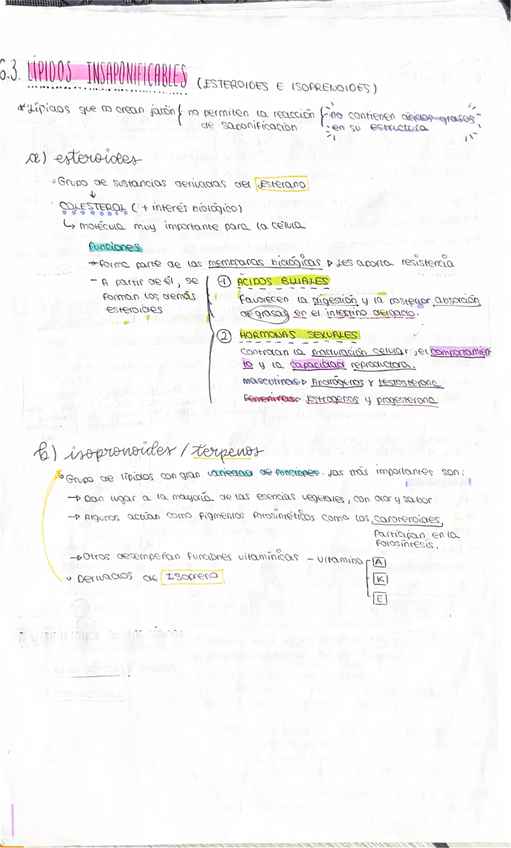 6.3. LÍPIDOS INSAPONIFICABLES (ESTEROIDES E ISOPRENOIDES)
*Lípidos que no crean jabón { no permiten la reacción { no contienen ácidos grasos
de saponificación en su estructura
a) esteroides
· Grupo de sustancias derivadas del esterano
↓
COLESTEROL (+ interés biológico)
↳ molécula muy importante para la célula
Funciones
→ Forma parte de las membranas biológicas ▷ les aporta resistencia
- A partir de él, se
forman los demás
esteroides
① ÁCIDOS BILIALES
Favorecen la digestión y la posterior absorción
de grasas en el intestino delgado.
② HORMONAS SEXUALES
Controlan la maduración celular, el comportamien
to y la capacidad reproductora.
masculinas ▷ Andrógenos y testosterona
Femeninas ▷ Estrógenos y progesterona
b) isopronoides / terpenos
· Grupo de lípidos con gran variedad de funciones. Las más importantes son:
→ Dan lugar a la mayoría de las esencias vegetales, con olor y sabor
→ Algunos actúan como pigmentos fotosintéticos como los carotenoides,
Participan en la
fotosíntesis.
→ Otros desempeñan funciones vitamínicas - vitamina A
K
E
· Derivados de Isopreno